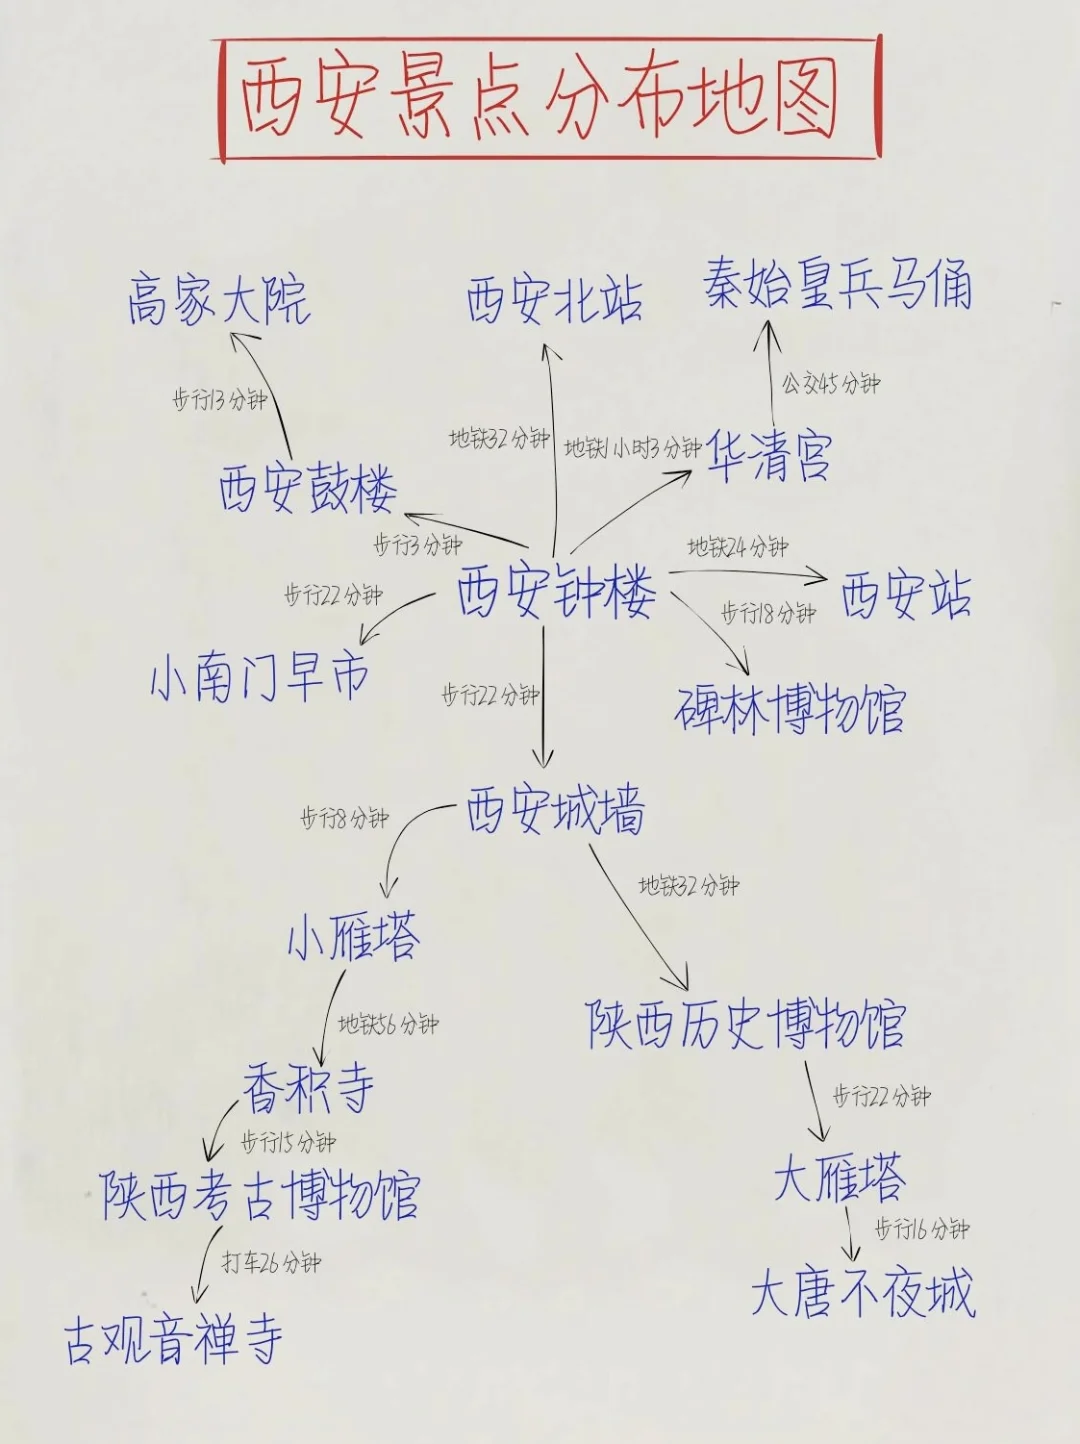 西安景点分布地图
高家大院
西安北站
秦始皇兵马俑
步行13分钟
公交45分钟
地铁32分钟
地铁1小时3分钟
华清宫
西安鼓楼
步行3分钟
地铁24分钟
步行22分钟
西安钟楼
西安站
步行18分钟
小南门早市
步行22分钟
碑林博物馆
西安城墙
步行8分钟
地铁32分钟
小雁塔
陕西历史博物馆
地铁56分钟
香积寺
步行22分钟
步行15分钟
大雁塔
陕西考古博物馆
步行16分钟
打车26分钟
大唐不夜城
古观音禅寺